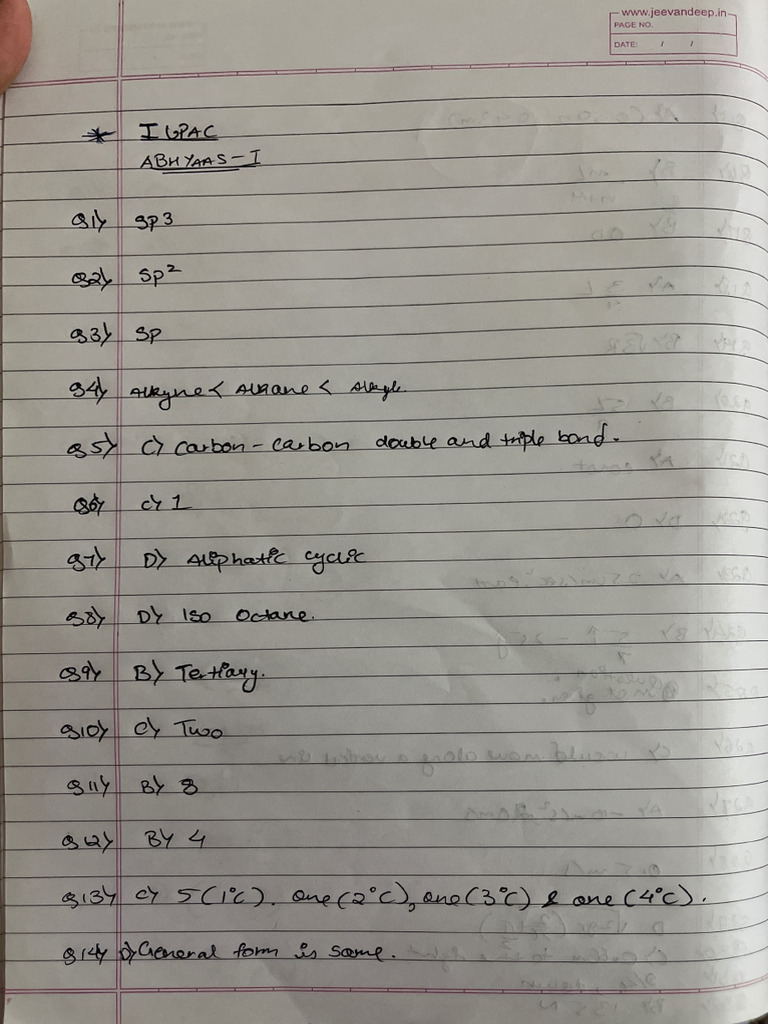 www.jeevandeep.in
PAGE NO.
DATE: / /
* IUPAC
ABHYAAS-I
Q1) SP3
Q2) SP²
Q3) SP
Q4) Alkyne < Alkane <
Q5) C) Carbon-carbon double and triple bond.
Q6) C) 1
Q7) D) Aliphatic cyclic
Q8) D) Iso Octane.
Q9) B) Tertiary.
Q10) C) Two
Q11) B) 8
Q12) B) 4
Q13) C) 5(1°C). One(2°C), one(3°C) & one(4°C).
Q14) D) General form is same.